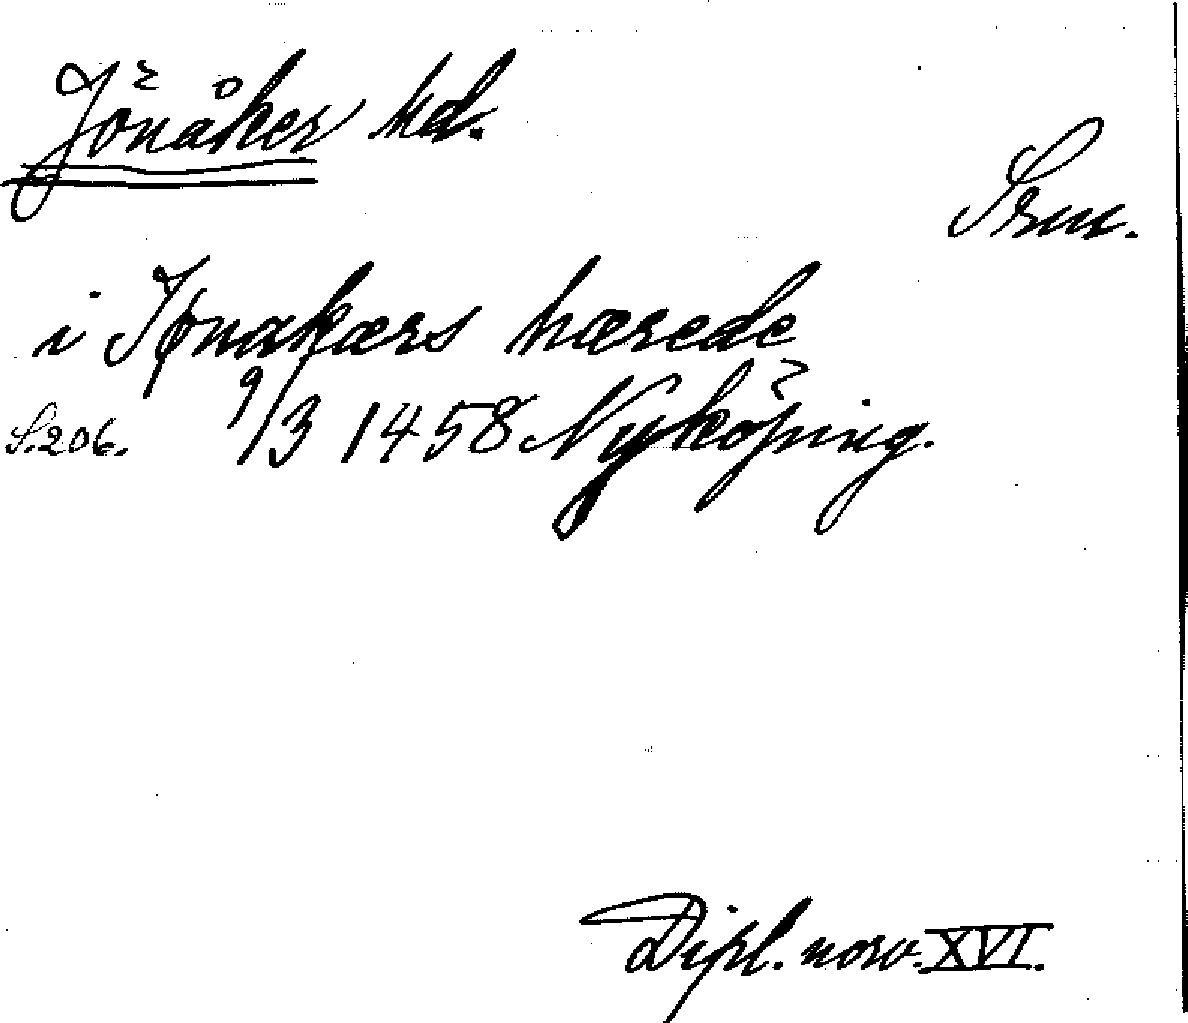 Jönåker hd.
Srm.
i Jønakærs hærede
S. 206. 9/3 1458 Nyköping.
Dipl. norv. XVI.